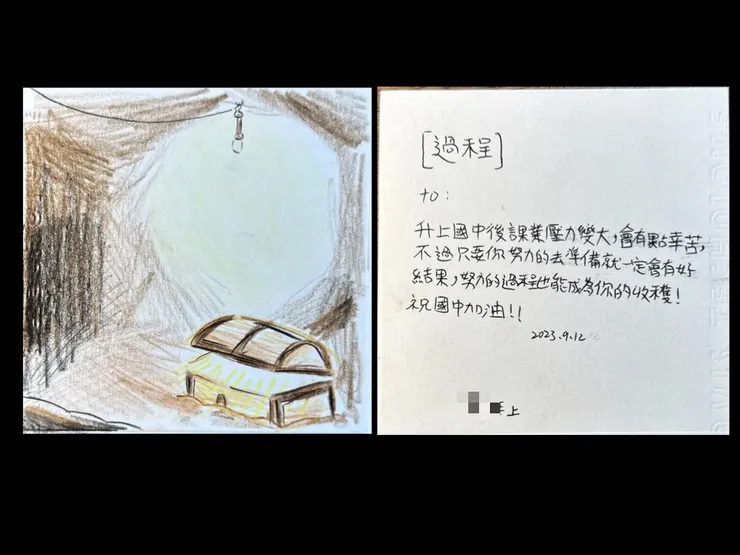 [過程]
to:
升上國中後課業壓力變大，會有點辛苦，
不過只要你努力的去準備就一定會有好
結果，努力的過程也能成為你的收穫！
祝國中加油！！
2023.9.12
上